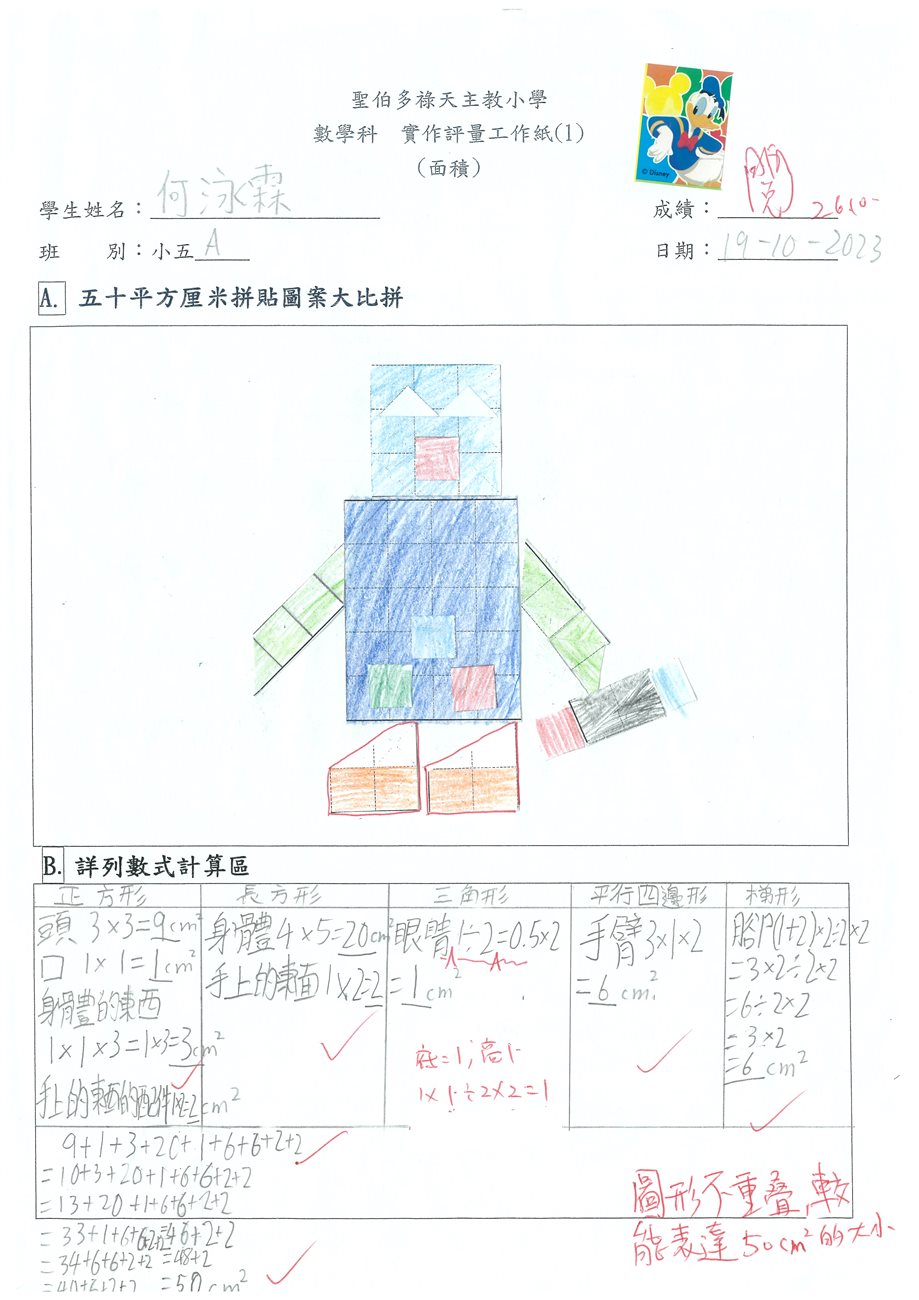 聖伯多祿天主教小學
數學科 實作評量工作紙(1)
(面積)
© Disney
學生姓名：何泳霖
成績：
26/10
班 別：小五 A
日期：19-10-2023
A. 五十平方厘米拼貼圖案大比拼
B. 詳列數式計算區
正方形 長方形 三角形 平行四邊形 梯形
頭 3×3=9cm²
口 1×1=1cm²
身體的東西
1×1×3=1×3=3cm²
手上的東西的配件1×2=2cm²
身體4×5=20cm²
手上的東西1×2=2
眼睛1÷2=0.5×2
=1cm²
底=1；高1
1×1÷2×2=1
手臂3×1×2
=6cm²
腳(1+2)×2÷2×2
=3×2÷2×2
=6÷2×2
=3×2
=6cm²
9+1+3+20+1+6+6+2+2
=10+3+20+1+6+6+2+2
=13+20+1+6+6+2+2
=33+1+6+6+2+2=46+2+2
=34+6+6+2+2=48+2
=40+6+2+2=50cm²
圖形不重疊，較
能表達50cm²的大小